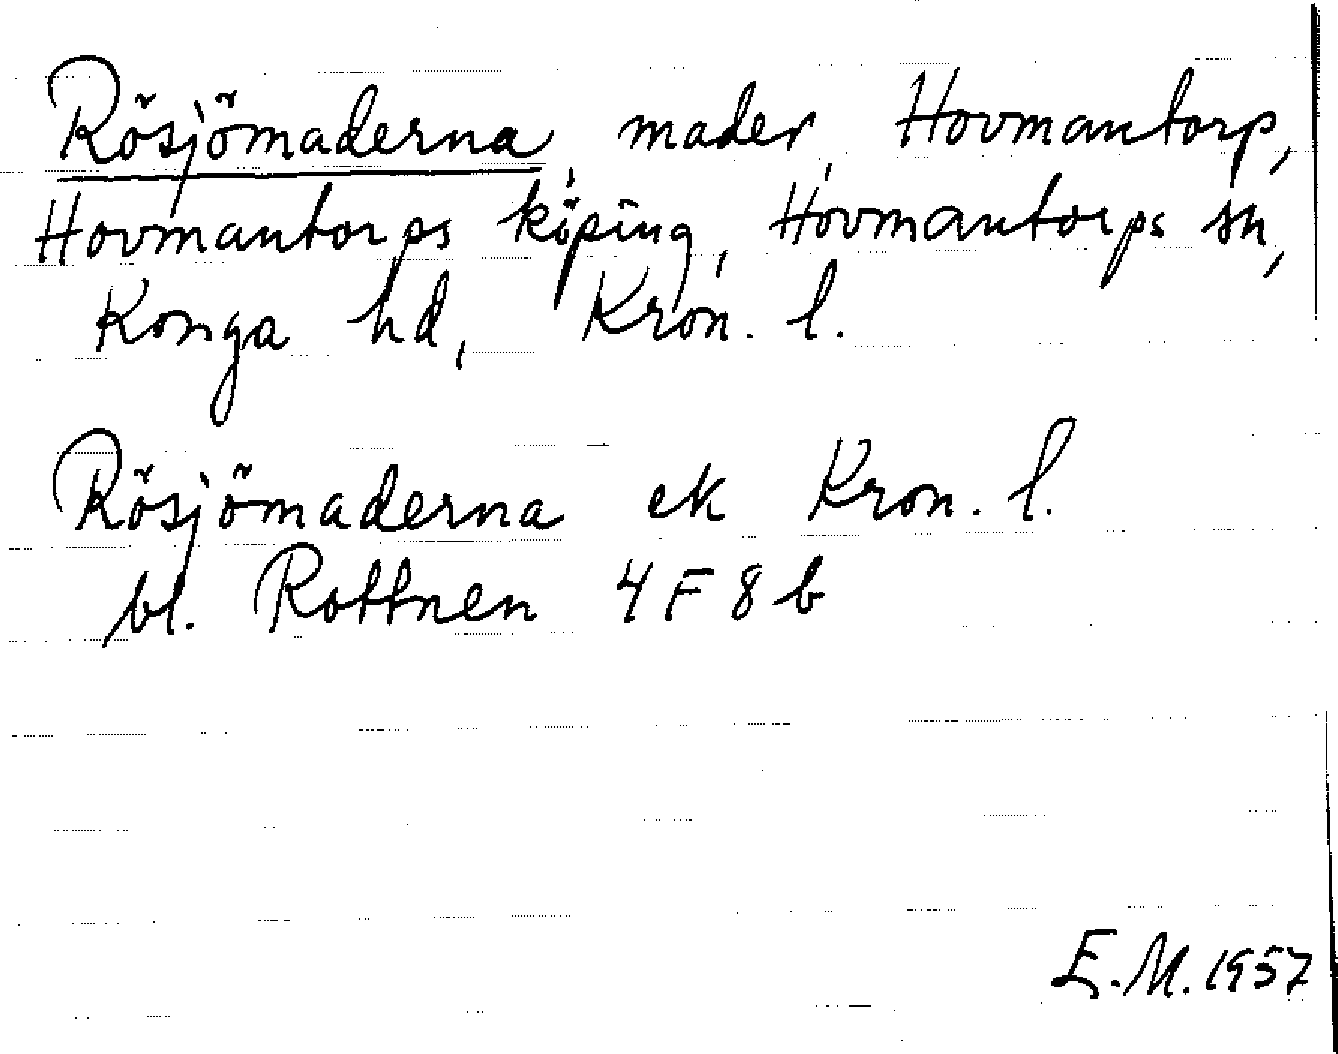 Rösjömaderna, mader, Hovmantorp,
Hovmantorps köping, Hovmantorps sn,
Konga hd, Kron. l.
Rösjömaderna ek Kron. l.
bl. Rottnen 4F8b
E.M. 1957